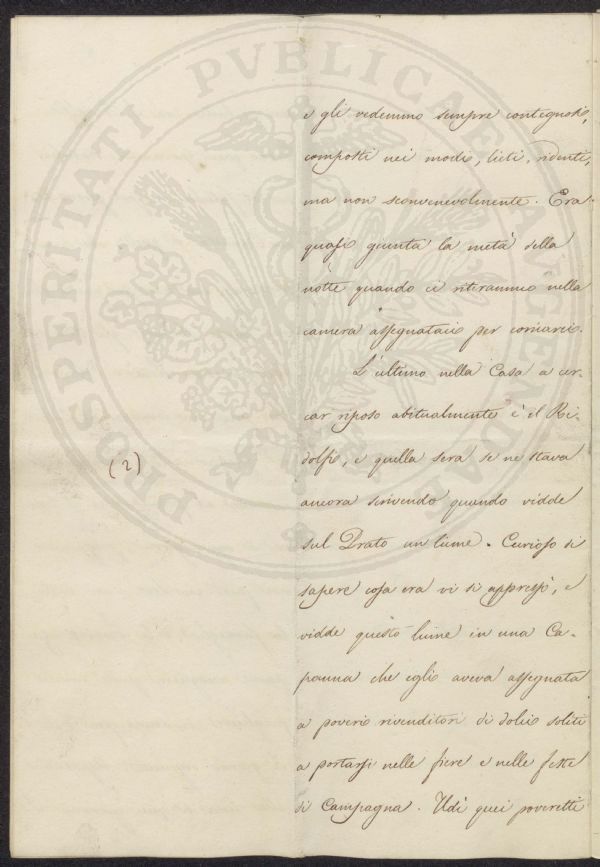 e gli vedemmo sempre contegnosi,
composti nei modi, lieti, ridenti,
ma non sconvenevolmente. Era
quasi giunta la metà della
notte quando ci ritirammo nella
camera assegnataci per coricarci.
L'ultimo nella Casa a cer-
car riposo abitualmente è il Ri-
dolfi, e quella sera se ne stava
(2)
ancora scrivendo quando vidde
sul Prato un lume. Curioso di
sapere cosa era vi si appressò, e
vidde questo lume in una Ca-
panna che egli aveva assegnata
a poveri rivenditori di dolci soliti
a portarsi nelle fiere e nelle feste
di Campagna. Udì quei poveretti
PROSPERITATI PVBLICAE